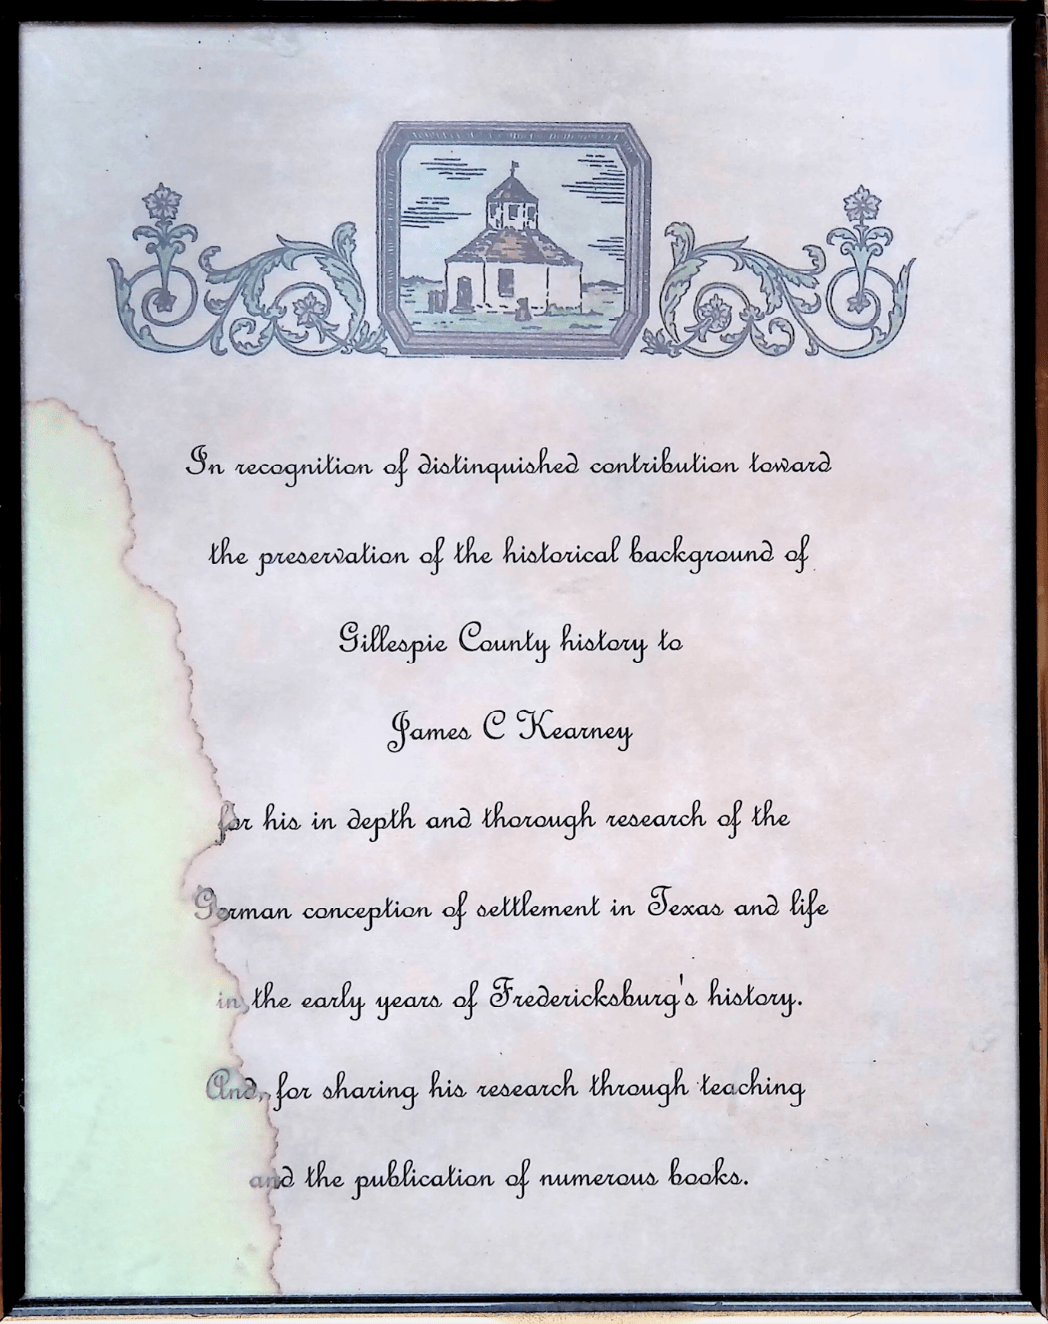 In recognition of distinguished contribution toward
the preservation of the historical background of
Gillespie County history to
James C Kearney
for his in depth and thorough research of the
German conception of settlement in Texas and life
in the early years of Fredericksburg's history.
And, for sharing his research through teaching
and the publication of numerous books.